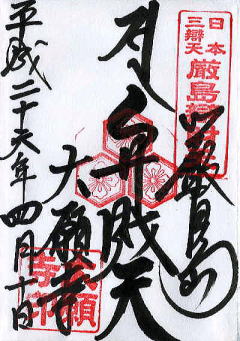 日本
三辯天
厳島
嚴島
弁財天
大願寺
平成二十六年四月十日
大願
寺印